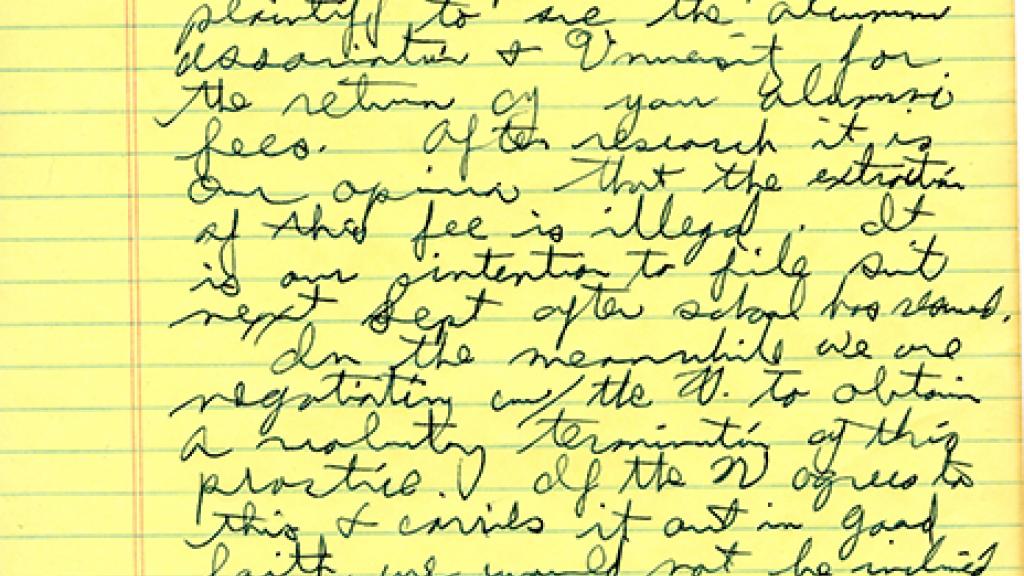 plaintiff to sue the alumni
association & University for
the return of your alumni
fees. After research it is
our opinion that the extraction
of this fee is illegal. It
is our intention to file suit
next Sept after school has resumed.
In the meanwhile we are
negotiating w/ the U. to obtain
a voluntary termination of this
practice. If the U agrees to
this & carries it out in good
faith we would not be inclined